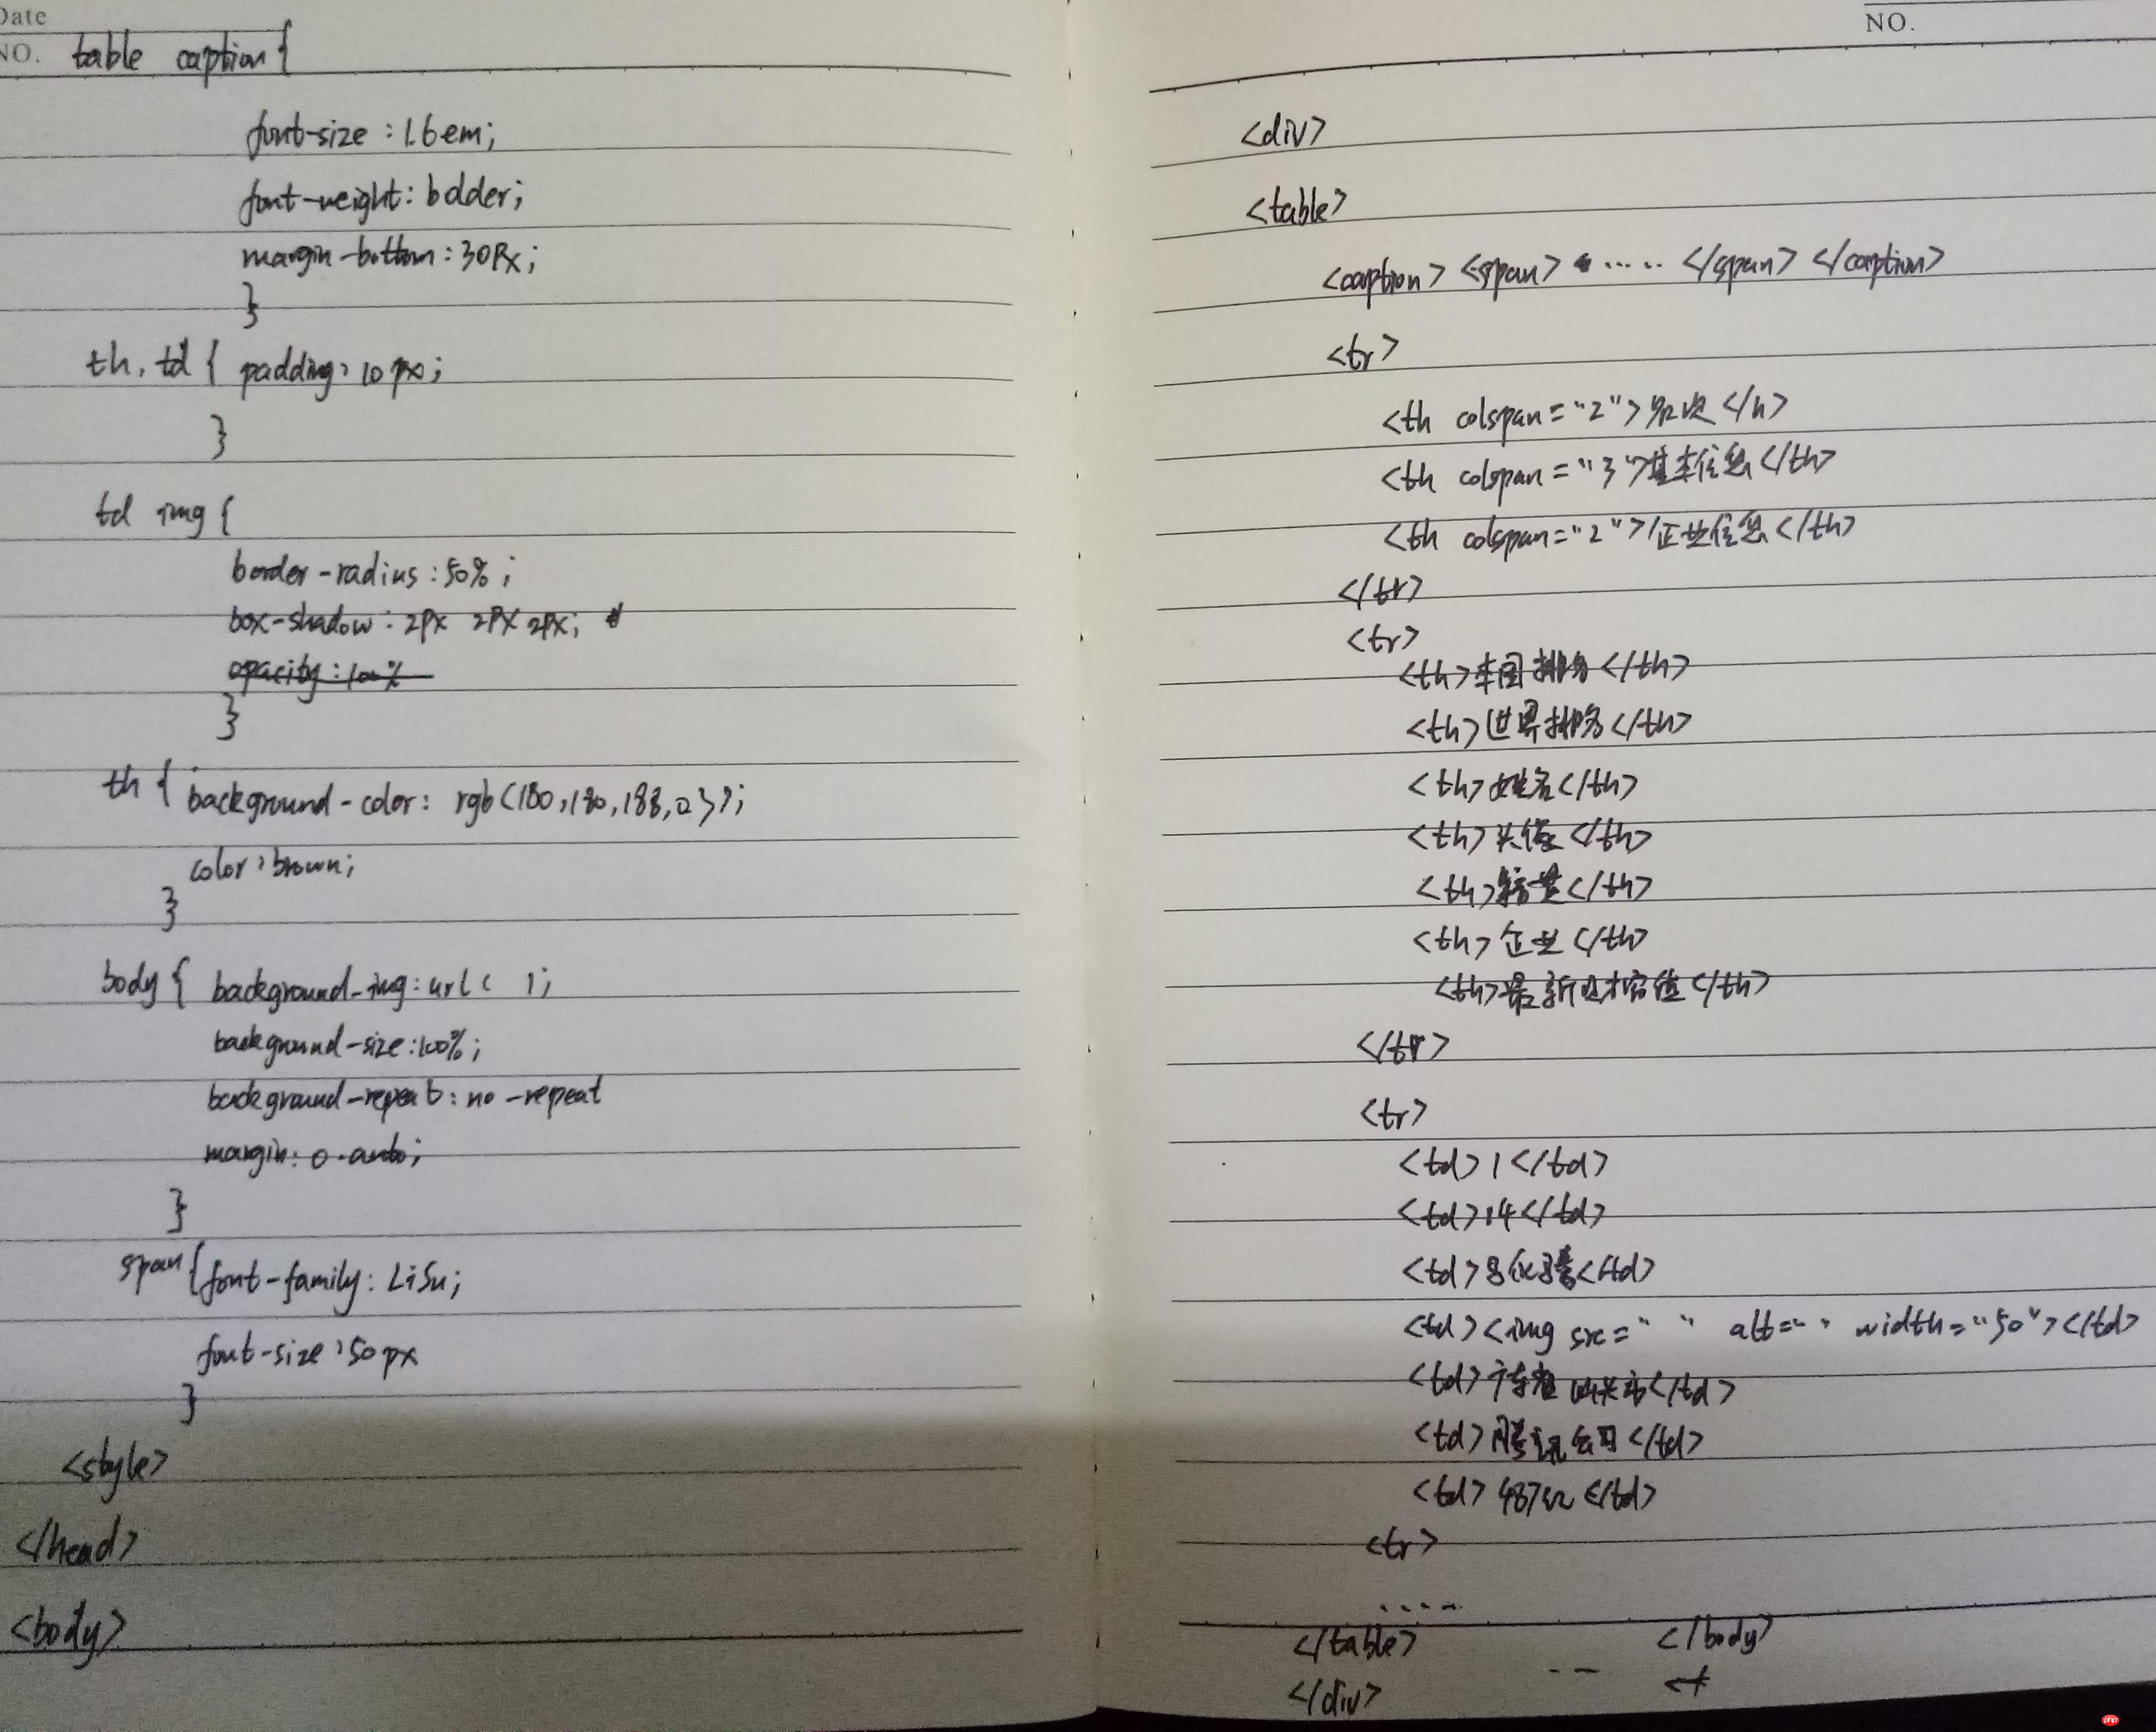 Date
NO. table caption{
font-size :1.6em;
font-weight: bolder;
margin-bottom:30Px;
}
th, td { padding: 10px;
}
td img{
border-radius:50%;
box-shadow: 2Px 2PX 2PX;
opacity:100%
}
th { background-color: rgb(180,180,188,0.3);
color:brown;
}
body{ background-img:url( );
background-size:100%;
background-repeat:no-repeat
margin: 0 auto;
}
span{font-family: LiSu;
font-size:50px
}
<style>
</head>
<body>
NO.
<div>
<table>
<caption> <span> ..... </span> </caption>
<tr>
<th colspan="2">名次</h>
<th colspan="3">基本信息</th>
<th colspan="2">企业信息</th>
</tr>
<tr>
<th>本国排名</th>
<th>世界排名</th>
<th>姓名</th>
<th>头像</th>
<th></th>
<th>企业</th>
<th>最新估值</th>
</tr>
<tr>
<td>1</td>
<td>14</td>
<td>马化腾</td>
<td><img src=" " alt=" " width="50"></td>
<td></td>
<td>腾讯公司</td>
<td>487亿</td>
<tr>
.....
</table>
</body>
</div>
--
<php